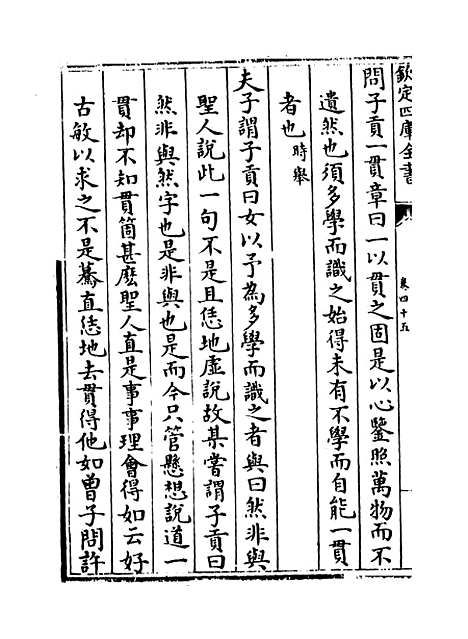 欽定四庫全書
卷四十五
問子貢一貫章曰一以貫之固是以心鑒照萬物而不
遺然也須多學而識之始得未有不學而自能一貫
者也時舉
夫子謂子貢曰女以予為多學而識之者與曰然非與
聖人說此一句不是且恁地虛說故某嘗謂子貢曰
然非與然字也是非與也是而今只管懸想說道一
貫却不知貫箇甚麽聖人直是事事理會得如云好
古敏以求之不是驀直恁地去貫得他如曽子問許